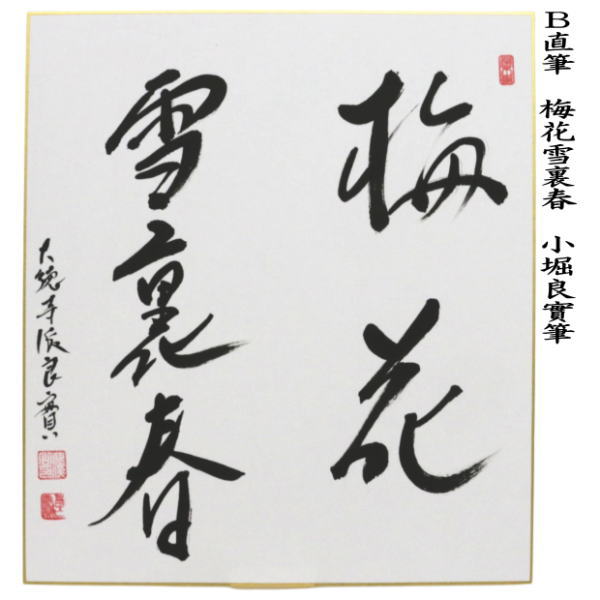 B直筆　梅花雪裏春　小堀良實筆
梅花
雪裏春
大徳寺派良實